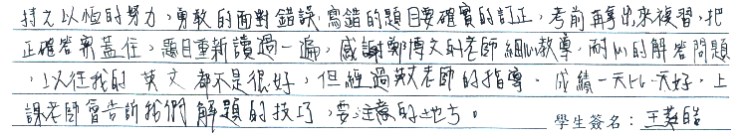 持之以恆的努力，勇敢的面對錯誤，寫錯的題目要確實的訂正，考前再拿出來複習，把
正確答案蓋住，題目重新讀過一遍，感謝鄭博文的老師細心教導，耐心的解答問題
，以往我的英文都不是很好，但經過老師的指導，成績一天比一天好，上
課老師會告訴我們解題的技巧，要注意的地方。
學生簽名：王